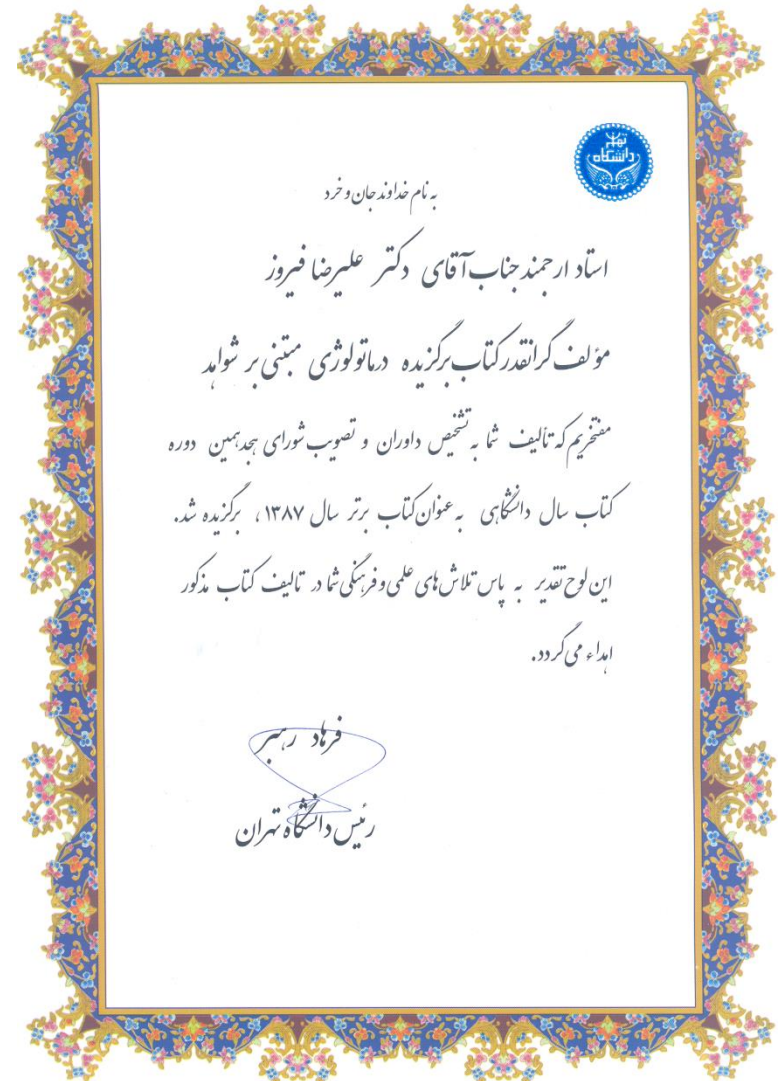 دانشگاه تهران
به نام خداوند جان و خرد
استاد ارجمند جناب آقای دکتر علیرضا فیروز
مؤلف گرانقدر کتاب برگزیده درماتولوژی مبتنی بر شواهد
مفتخریم که تألیف شما به تشخیص داوران و تصویب شورای هجدهمین دوره
کتاب سال دانشگاهی به عنوان کتاب برتر سال ۱۳۸۷، برگزیده شد.
این لوح تقدیر به پاس تلاش های علمی و فرهنگی شما در تالیف کتاب مذکور
اهداء می گردد.
فرهاد رهبر
رئیس دانشگاه تهران